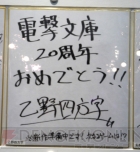 電撃文庫
20周年
おめでとう!!
乙野四方字